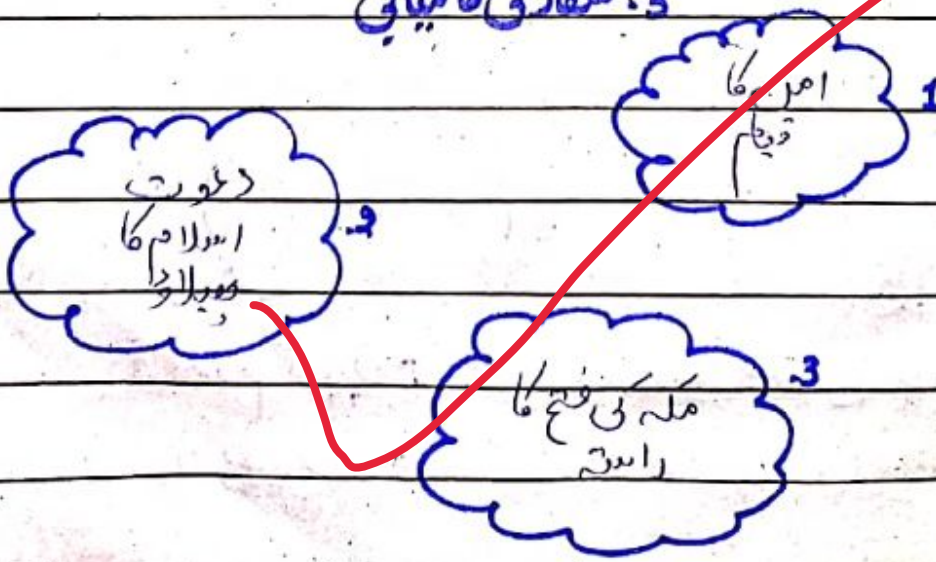 3. سفارتی کامیابی
1
امن کا
قیام
2.
دعوت
اسلام کا
پھیلاؤ
3.
مکہ کی فتح کا
راستہ